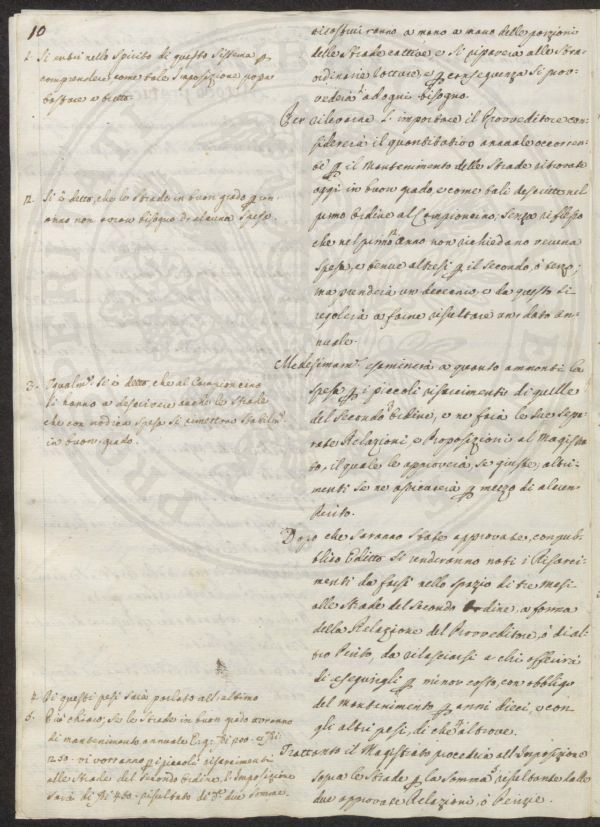 10
1. Si entri nello Spirito di questo Sistema p
comprendere, come tale Imposizione possa
bastare a tutto.
2. Si è detto, che le Strade in buon grado p un
anno non avran bisogno di alcuna Spesa.
3. Egualm.e Si è detto, che al Campioncino
Si hanno a descrivere anche le Strade
che con modica Spesa Si rimettono Stabilm.e
in buon grado.
4. Di questi pesi Sarà parlato all'ultimo
5. E' chiaro; Se le Strade in buon grado avranno
di mantenimento annuale
1250 vi vorranno p i piccoli risarcimenti
alle Strade del Secondo Ordine, l'Imposizione
Sarà di risultato di d.e due Somme.
ricostruiranno a mano a mano delle porzioni
delle Strade cattive e Si riparerà alle Stra-
ordinarie rotture, e p conseguenza Si prov-
vederà ad ogni bisogno.
Per rilevarne l'importare il Provveditore con-
sidererà il quantitativo annuale occorren-
te p il Mantenimento delle Strade ritrovate
oggi in buon grado, e come tali descritte nel
primo Ordine al Campioncino; Senza riflesso
che nel primo anno non richiedano veruna
Spesa, e tenue altresì p il Secondo, ò terzo;
ma prenderà un decennio, e da questo Si
regolerà a farne risultare un dato an-
nuale.
Medesimam.e esaminerà a quanto ammonti la
Spesa p i piccoli risarcimenti di quelle
del Secondo Ordine, e ne farà le Sue Sepa-
rate Relazioni, e Proposizioni al Magistra-
to, il quale le approverà, Se giuste; altri-
menti Se ne assicurerà p mezzo di alcun
Perito.
Dopo che Saranno State approvate, con pub-
blico Editto Si renderanno noti i Risarci-
menti da farsi nello Spazio di tre Mesi
alle Strade del Secondo Ordine, a forma
della Relazione del Provveditore, ò di al-
tro Perito, da rilasciarsi a chi offerirà
di eseguirgli p minor costo, con obbligo
del Mantenimento p anni dieci, e con
gli altri pesi, di che altrove.
Trattanto il Magistrato procederà all'Imposizione
Sopra le Strade p la Somma risultante dalle
due approvate Relazioni, ò Perizie.